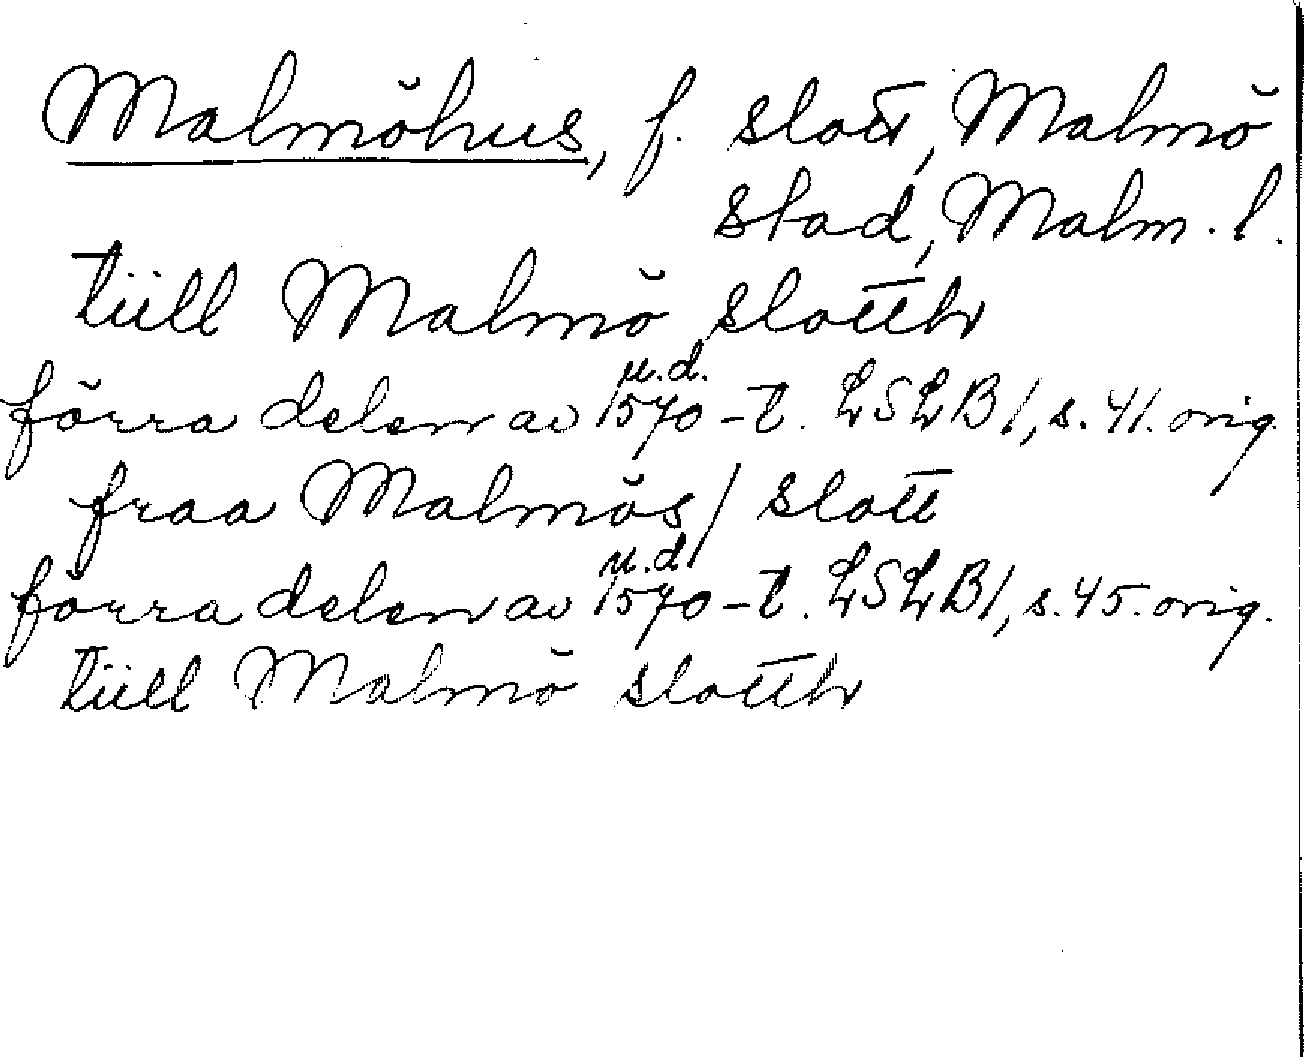 Malmöhus, f. slott, Malmö
stad, Malm. l.
tiill Malmö slotth
u.d.
förra delen av 1570-t. LSLB1, s. 41. orig.
fraa Malmös/slott
u.d.
förra delen av 1570-t. LSLB1, s. 45. orig.
tiill Malmö slotth